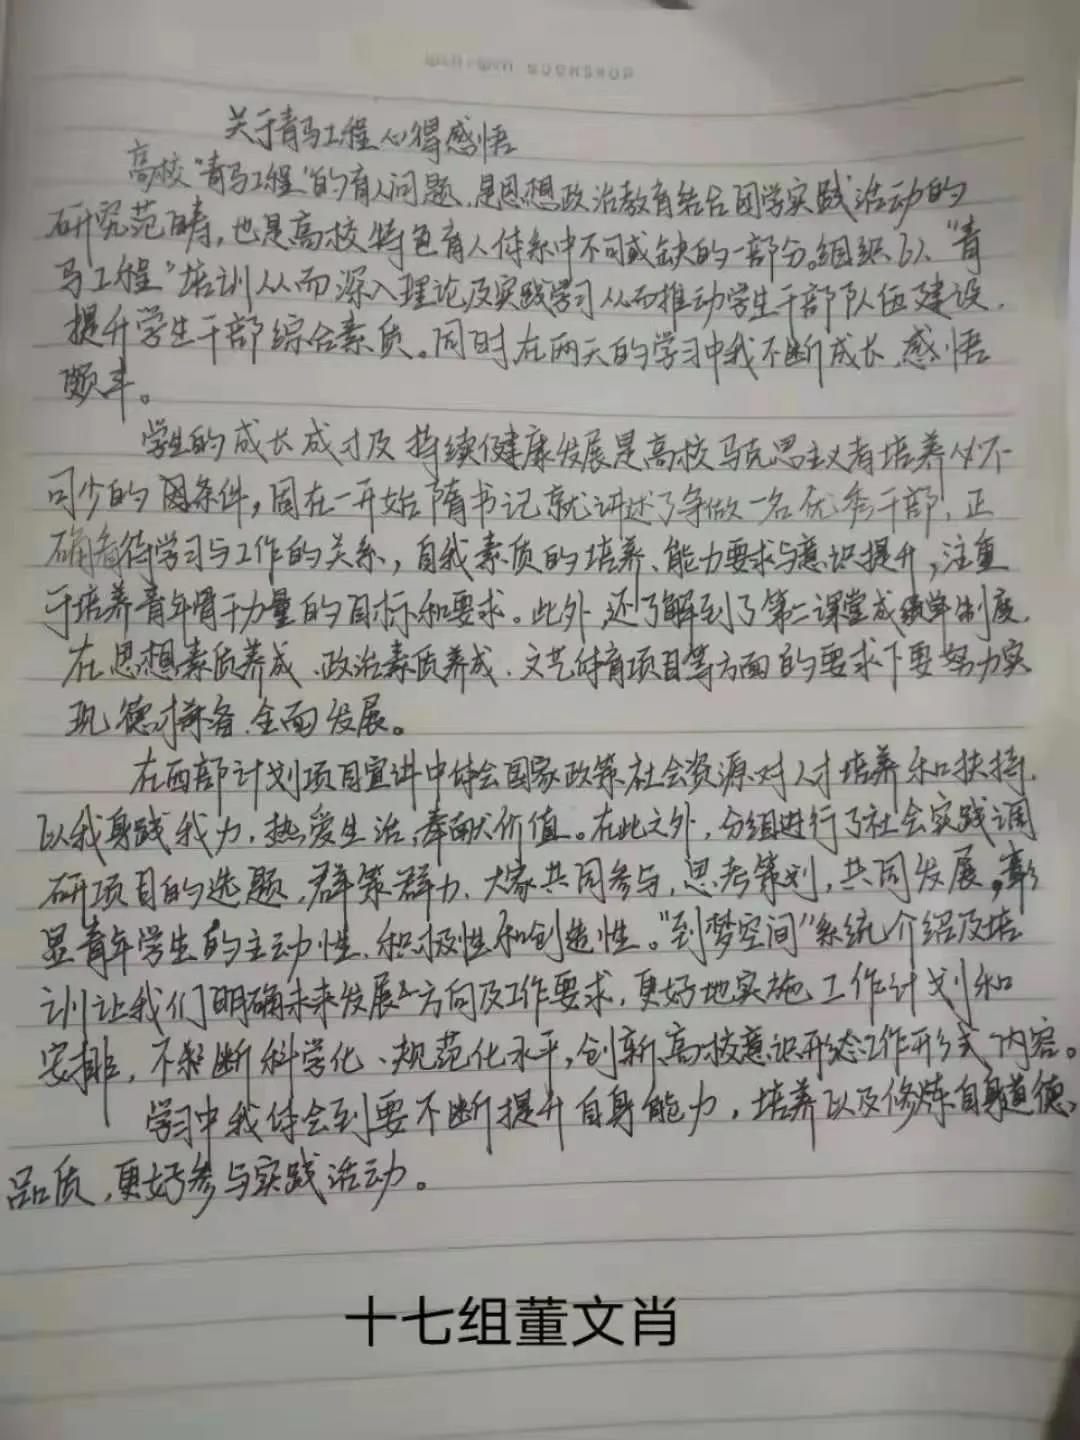 关于青马工程心得感悟
高校“青马工程”的育人问题，是思想政治教育结合团学实践活动的
研究范畴，也是高校特色育人体系中不可或缺的一部分。组织以“青
马工程”培训从而深入理论及实践学习从而推动学生干部队伍建设，
提升学生干部综合素质。同时在两天的学习中我不断成长，感悟
颇丰。
学生的成长成才及持续健康发展是高校马克思主义者培养必不
可少的条件，固在一开始隋书记就讲述了争做一名优秀干部，正
确看待学习与工作的关系，自我素质的培养、能力要求与意识提升，注重
于培养青年骨干力量的目标和要求。此外，还了解到了第二课堂成绩单制度，
在思想素质养成、政治素质养成、文艺体育项目等方面的要求下要努力实
现德才兼备，全面发展。
在西部计划项目宣讲中体会国家政策、社会资源对人才培养和扶持，
以我身践我力，热爱生活，奉献价值。在此之外，分组进行了社会实践调
研项目的选题，群策群力，大家共同参与，思考策划，共同发展，彰
显青年学生的主动性、积极性和创造性。“到梦空间”系统介绍及培
训让我们明确未来发展方向及工作要求，更好地实施工作计划和
安排，不断科学化、规范化水平，创新高校意识形态工作形式、内容。
学习中我体会到要不断提升自身能力，培养以及修炼自身道德
品质，更好参与实践活动。
十七组董文肖